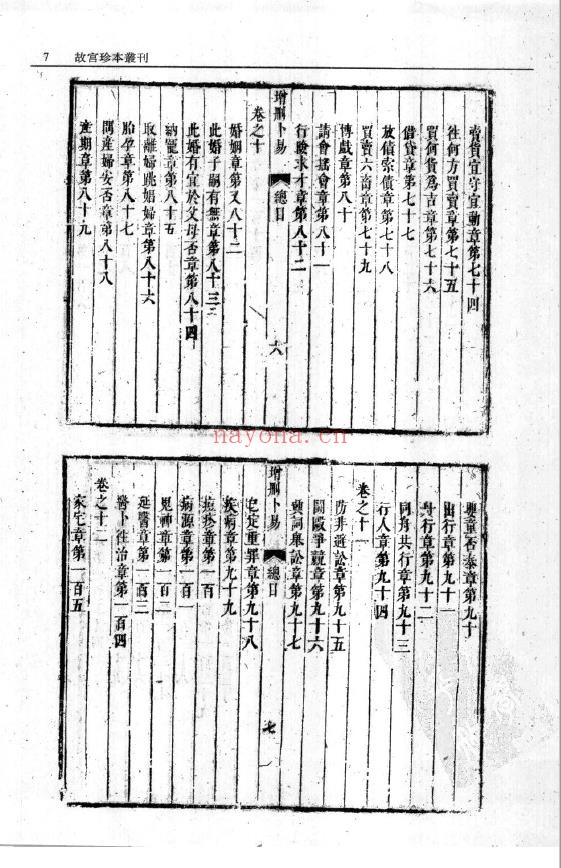 7 故宮珍本叢刊
賣貨宜守宜動章第七十四
往何方買賣章第七十五
買何貨爲吉章第七十六
借貸章第七十七
放債索債章第七十八
買賣六畜章第七十九
博戲章第八十
請會搖會章第八十一
行險求才章第八十二
增刪卜易 總目 六
卷之十
婚姻章第又八十二
此婚子嗣有無章第八十三
此婚有宜於父母否章第八十四
納寵章第八十五
取離婦跳娼婦章第八十六
胎孕章第八十七
問產婦安否章第八十八
產期章第八十九
嬰童否泰章第九十
出行章第九十一
舟行章第九十二
同舟共行章第九十三
行人章第九十四
卷之十一
防非避訟章第九十五
鬭毆爭競章第九十六
興詞舉訟章第九十七
增刪卜易 總目 七
已定重罪章第九十八
疾病章第九十九
痘疹章第一百
病源章第一百一
鬼神章第一百二
延醫章第一百三
醫卜往治章第一百四
卷之十二
家宅章第一百五
nayona.cn